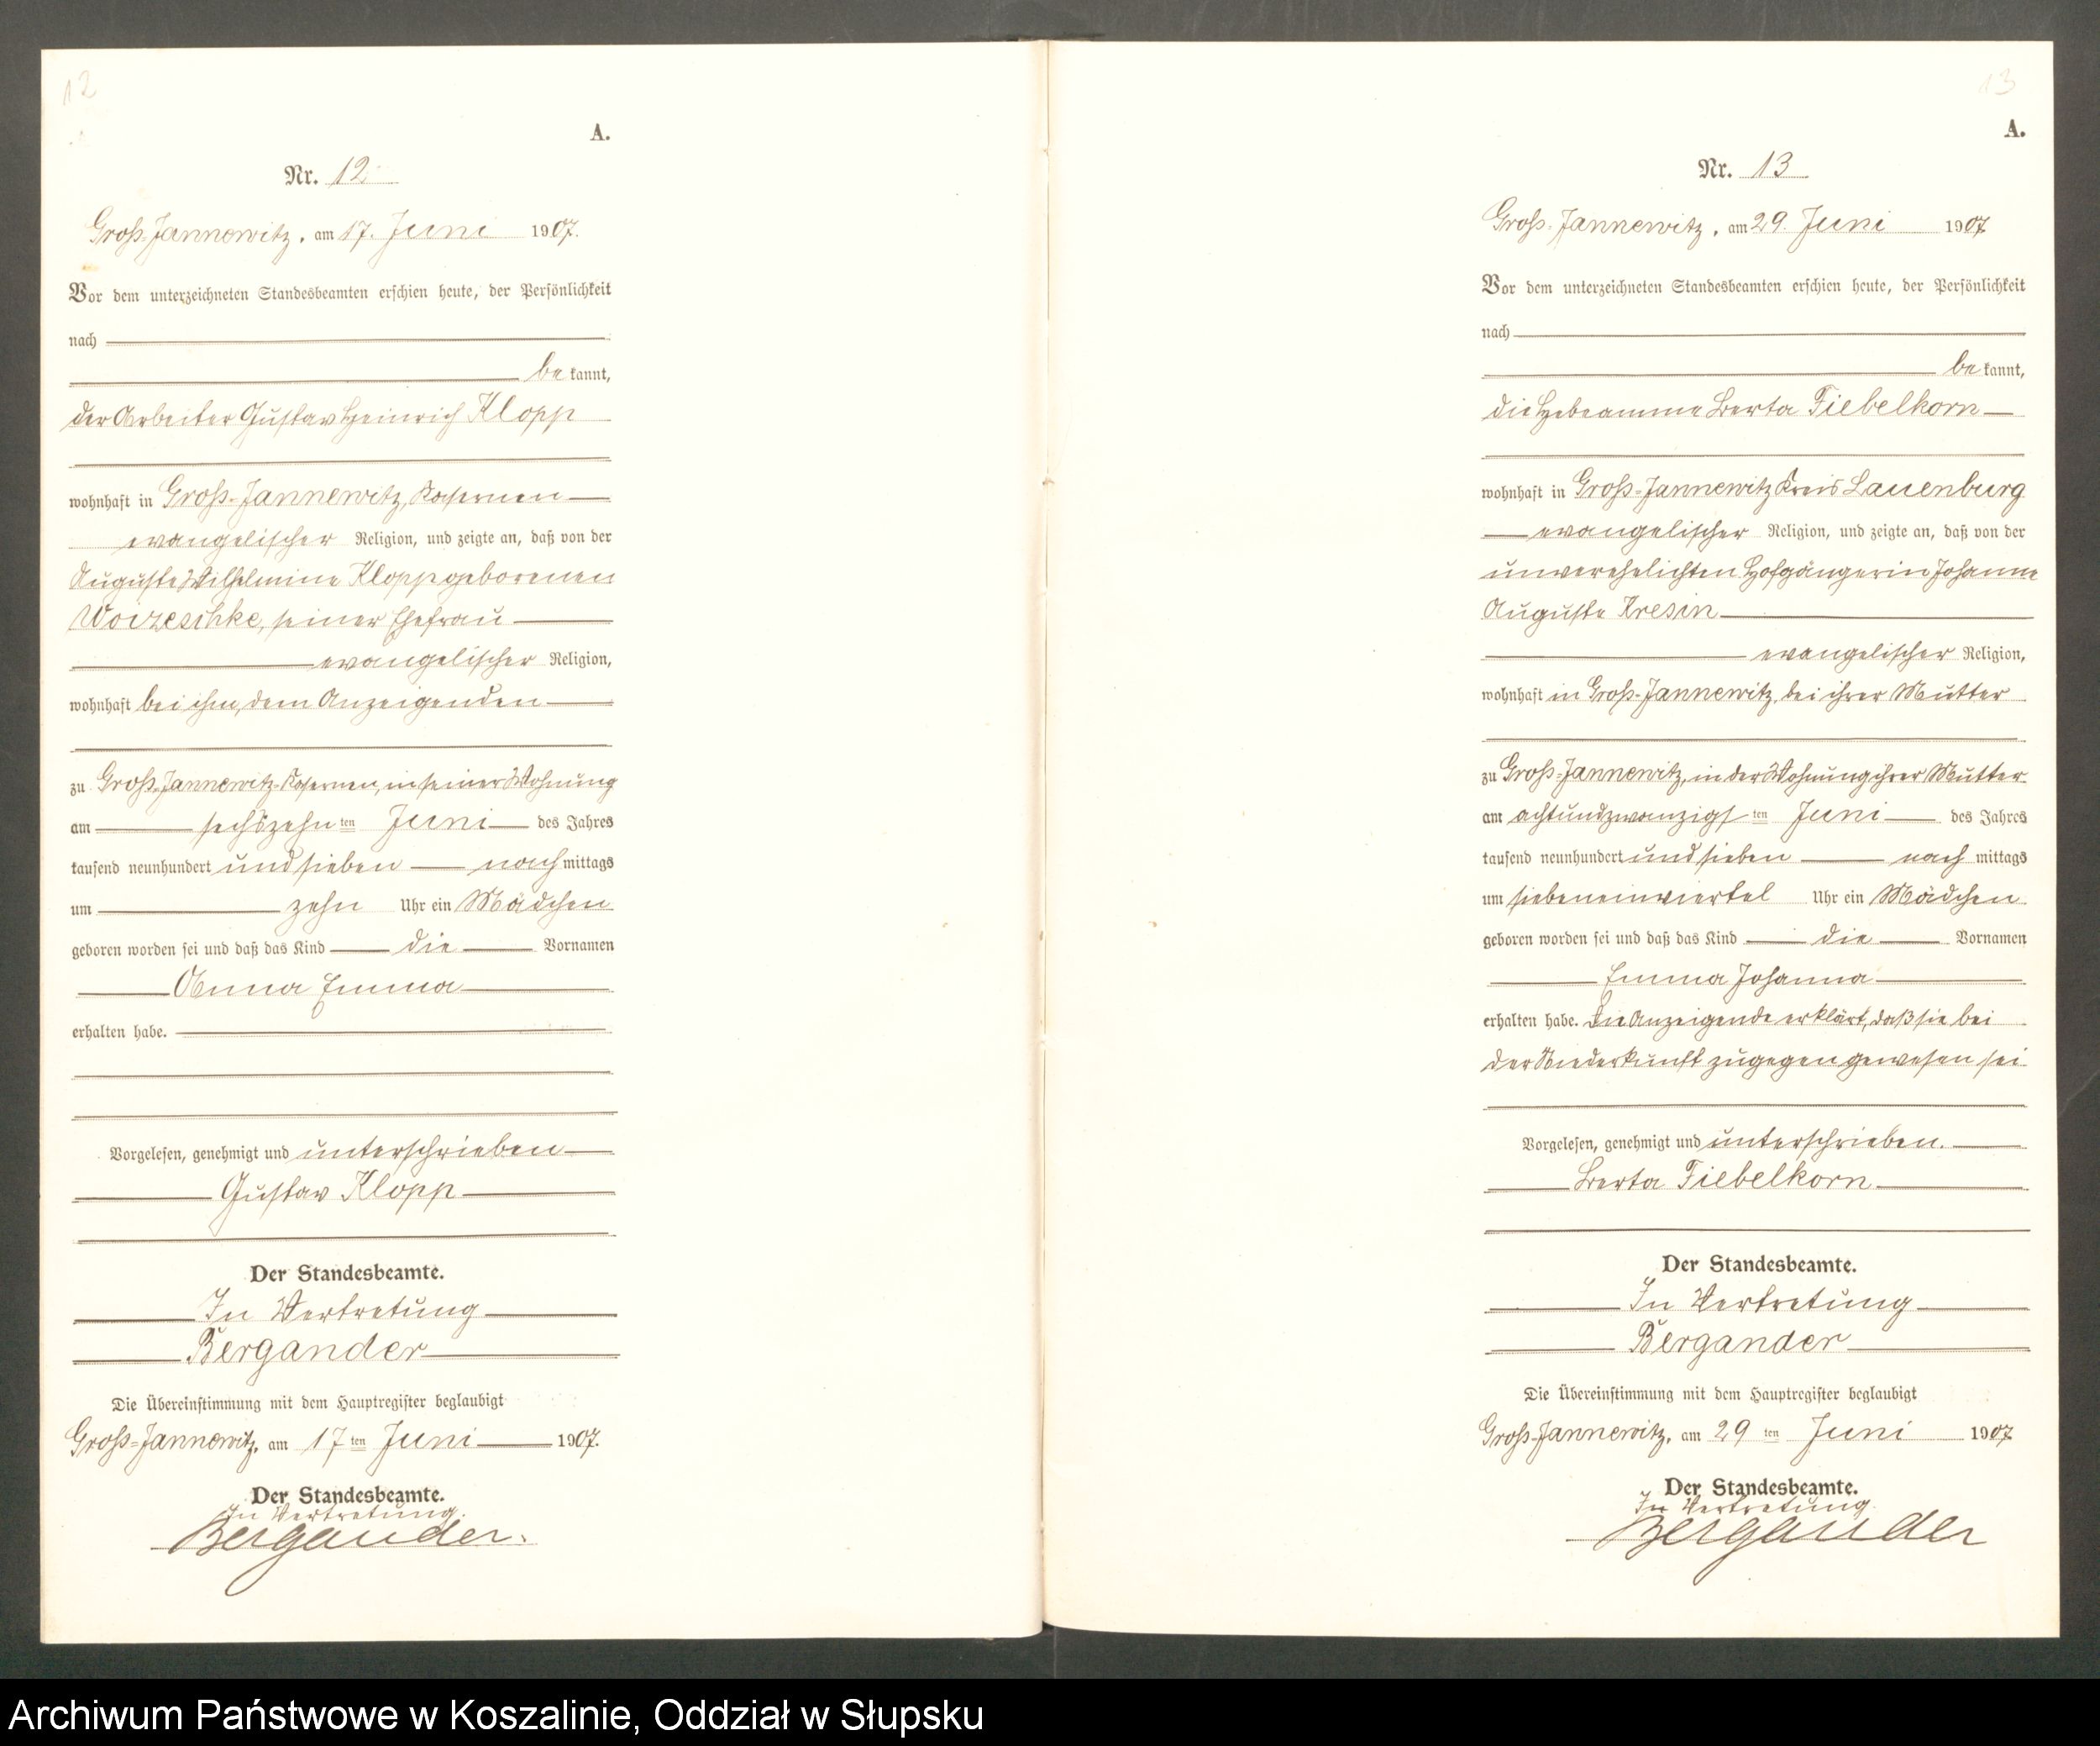 12
A.
Nr. 12.
Groß-Jannewitz, am 17. Juni 1907.
Vor dem unterzeichneten Standesbeamten erschien heute, der Persönlichkeit
nach
be kannt,
der Arbeiter Gustav Heinrich Klopp
wohnhaft in Groß-Jannewitz, Kasernen
evangelischer Religion, und zeigte an, daß von der
Auguste Wilhelmine Klopp geborenen
Woizeschke, seiner Ehefrau
evangelischer Religion,
wohnhaft bei ihm, dem Anzeigenden
zu Groß-Jannewitz-Kasernen, in seiner Wohnung
am sechszehn ten Juni des Jahres
tausend neunhundert und sieben nach mittags
um zehn Uhr ein Mädchen
geboren worden sei und daß das Kind die Vornamen
Anna Emma
erhalten habe.
Vorgelesen, genehmigt und unterschrieben
Gustav Klopp
Der Standesbeamte.
In Vertretung
Bergander
Die Übereinstimmung mit dem Hauptregister beglaubigt
Groß-Jannewitz, am 17 ten Juni 1907.
Der Standesbeamte.
In Vertretung.
Bergander.
13
A.
Nr. 13
Groß-Jannewitz, am 29. Juni 1907
Vor dem unterzeichneten Standesbeamten erschien heute, der Persönlichkeit
nach
be kannt,
die Hebeamme Berta Fiebelkorn
wohnhaft in Groß-Jannewitz Kreis Lauenburg
evangelischer Religion, und zeigte an, daß von der
unverehelichten Hofgängerin Johanne
Auguste Kresin
evangelischer Religion,
wohnhaft in Groß-Jannewitz, bei ihrer Mutter
zu Groß-Jannewitz, in der Wohnung ihrer Mutter
am achtundzwanzigs ten Juni des Jahres
tausend neunhundert und sieben nach mittags
um siebeneinviertel Uhr ein Mädchen
geboren worden sei und daß das Kind die Vornamen
Emma Johanna
erhalten habe. Die Anzeigende erklärt, daß sie bei
der Niederkunft zugegen gewesen sei
Vorgelesen, genehmigt und unterschrieben.
Berta Fiebelkorn
Der Standesbeamte.
In Vertretung
Bergander
Die Übereinstimmung mit dem Hauptregister beglaubigt
Groß-Jannewitz, am 29 ten Juni 1907
Der Standesbeamte.
In Vertretung.
Bergander
Archiwum Państwowe w Koszalinie, Oddział w Słupsku